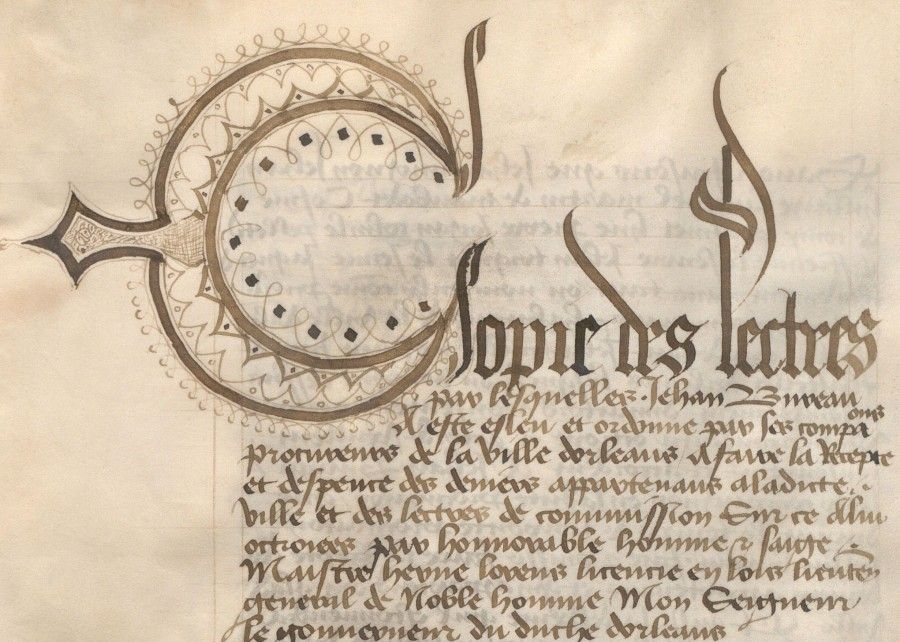 Copie des lectres
par lesquelles Jehan Bureau
A este esleu et ordonne par ses compaⁱᵒⁿˢ
procureurs de la ville dorleans A faire la Recepte
et despence des deniers appartenans a ladicte
ville et des lectres de commission Sur ce A lui
octroiees par honnorable homme & saige
Maistre henry lorens licencie en lois lieuten
general de Noble homme Mon Seigneur
le gouverneur du duche dorleans